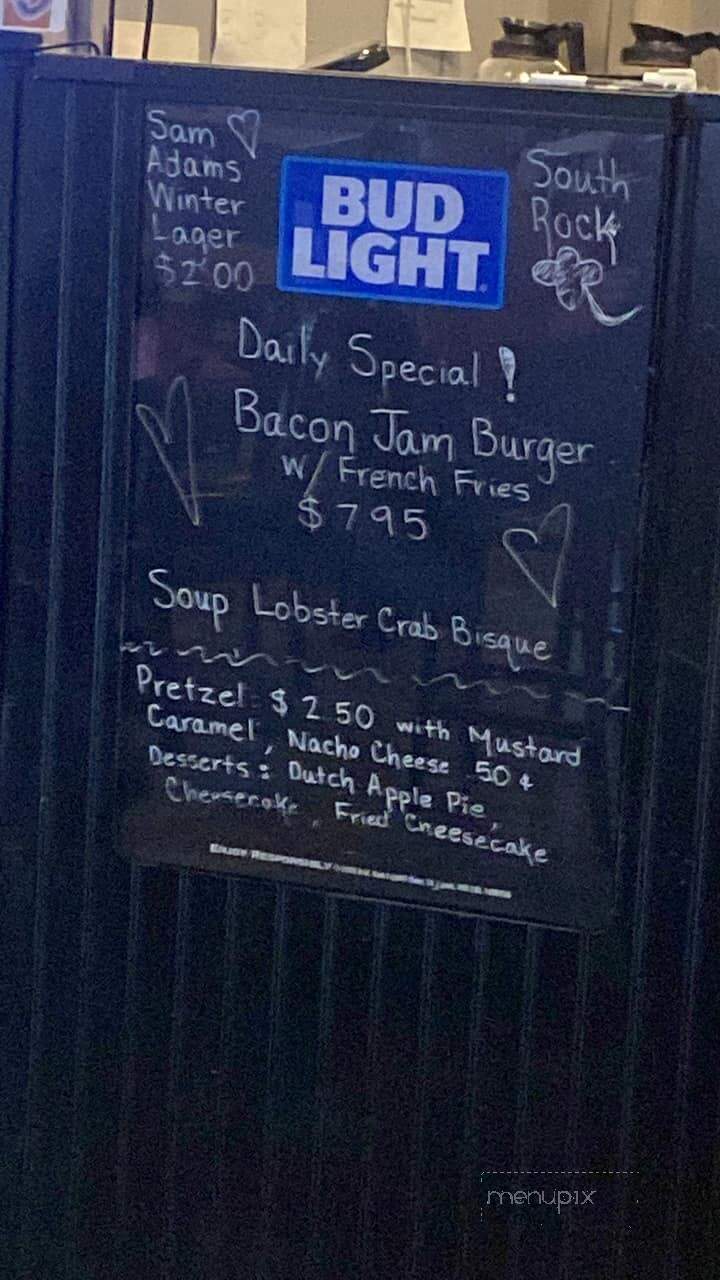 Sam
Adams
Winter
Lager
$2.00
BUD
LIGHT
South
Rock
Daily Special!
Bacon Jam Burger
w/ French Fries
$795
Soup Lobster Crab Bisque
Pretzel $2.50 with Mustard
Caramel, Nacho Cheese .50¢
Desserts: Dutch Apple Pie,
Cheesecake, Fried Cheesecake
ENJOY RESPONSIBLY
menupix